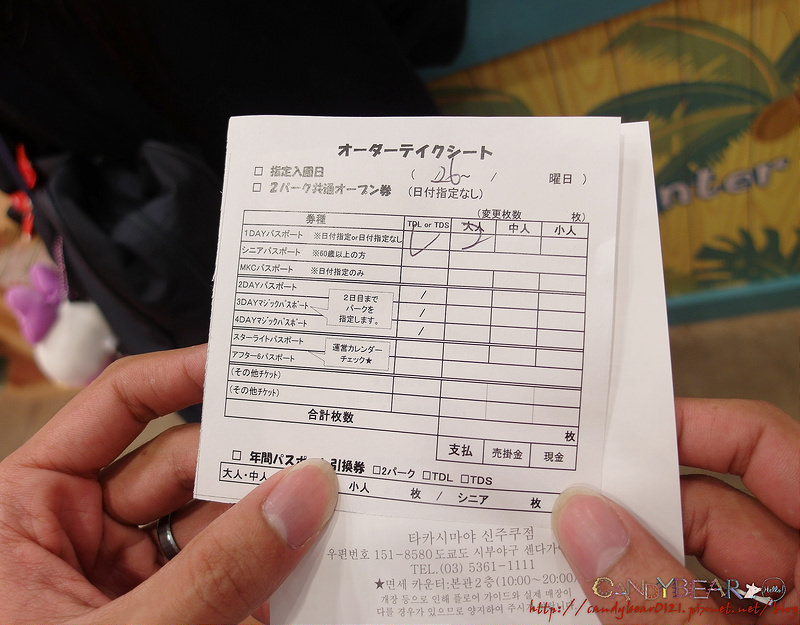 オーダーテイクシート
□ 指定入園日 ( / 曜日 )
□ 2パーク共通オープン券 (日付指定なし)
(変更枚数 枚)
券種 TDL or TDS 大人 中人 小人
1DAYパスポート ※日付指定or日付指定なし 2
シニアパスポート ※60歳以上の方
MKCパスポート ※日付指定のみ
2DAYパスポート /
3DAYマジックパスポート /
4DAYマジックパスポート /
2日目まで
パークを
指定します。
スターライトパスポート
アフター6パスポート
運営カレンダー
チェック★
(その他チケット)
(その他チケット)
合計枚数 枚
支払 売掛金 現金
□ 年間パスポート引換券 □2パーク □TDL □TDS
大人・中人 小人 枚 / シニア 枚
타카시마야 신주쿠점
우편번호 151-8580 도쿄도 시부야구 센다가
TEL.(03) 5361-1111
★면세 카운터:본관2층(10:00~20:00
개장 등으로 인해 플로어 가이드와 실제 매장이
다를 경우가 있으므로 양지하여 주시
nter
CANDYBEAR Hello!
http://candybear0121.pixnet.net/blog